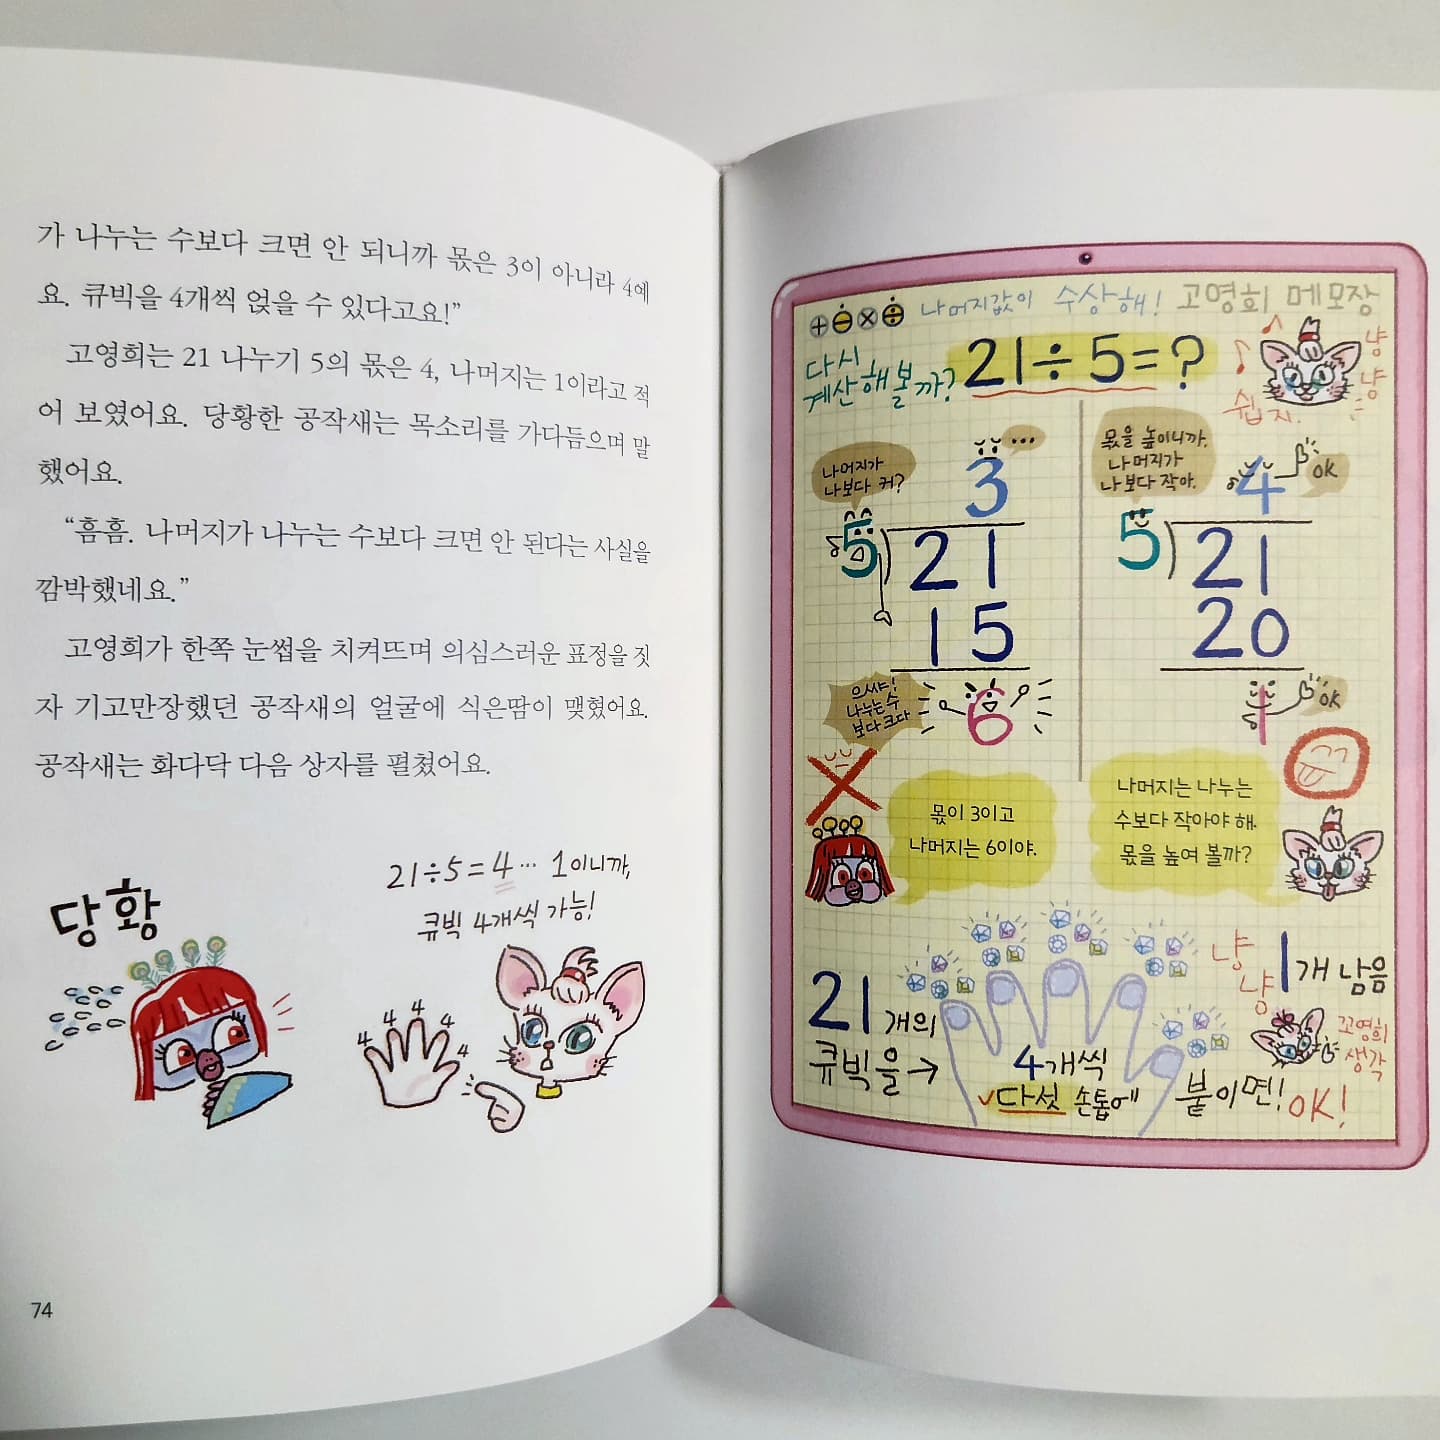 가 나누는 수보다 크면 안 되니까 몫은 3이 아니라 4예
요. 큐빅을 4개씩 얹을 수 있다고요!”
고영희는 21 나누기 5의 몫은 4, 나머지는 1이라고 적
어 보였어요. 당황한 공작새는 목소리를 가다듬으며 말
했어요.
“흠흠. 나머지가 나누는 수보다 크면 안 된다는 사실을
깜박했네요.”
고영희가 한쪽 눈썹을 치켜뜨며 의심스러운 표정을 짓
자 기고만장했던 공작새의 얼굴에 식은땀이 맺혔어요.
공작새는 화다닥 다음 상자를 펼쳤어요.
당황
21÷5=4… 1이니까,
큐빅 4개씩 가능!
4 4 4 4 4
74
나머지값이 수상해! 고영희 메모장
다시
계산해볼까?
21÷5=?
냥
냥
쉽지.
나머지가
나보다 커?
...
3
5)21
15
으쌰!
나누는 수
보다 크다
6
몫이 3이고
나머지는 6이야.
몫을 높이니까,
나머지가
나보다 작아.
4
OK
5)21
20
1
OK
나머지는 나누는
수보다 작아야 해.
몫을 높여 볼까?
21개의
큐빅을→
4개씩
✓다섯 손톱에
붙이면!
OK!
냥
냥
1개 남음
꼬영희
생각